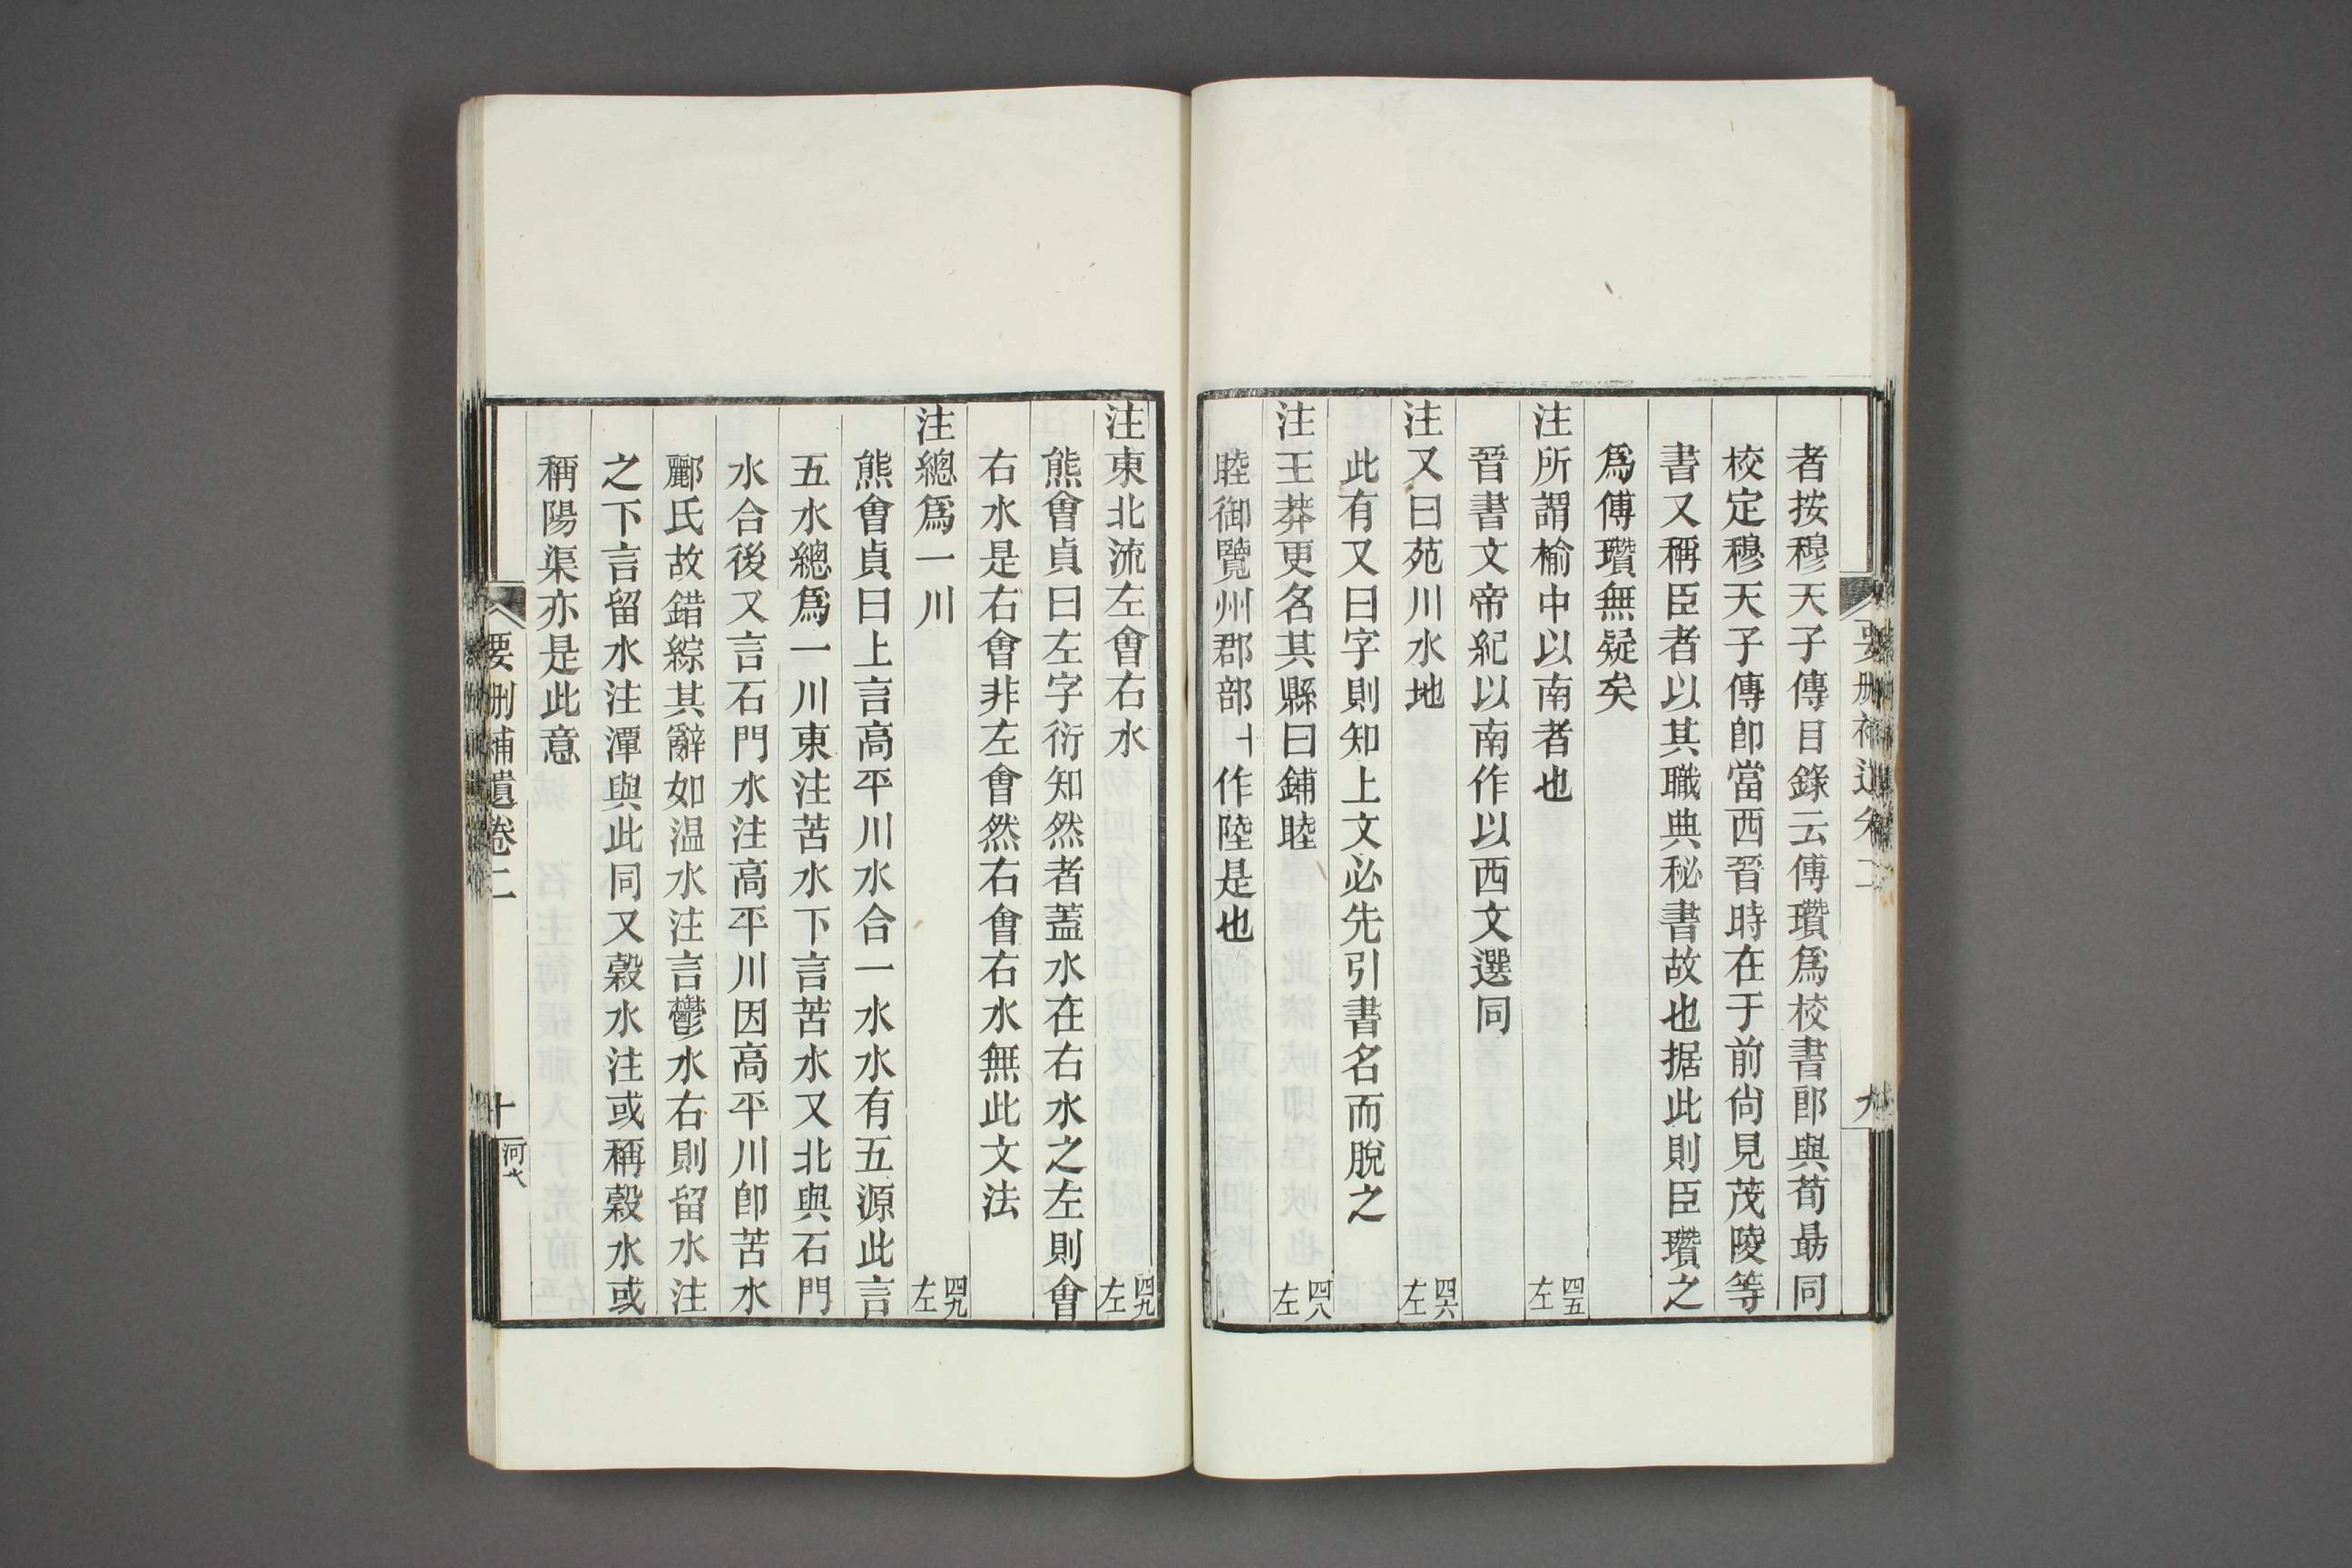 者按穆天子傳目錄云傅瓚爲校書郎與荀勗同
校定穆天子傳卽當西晉時在于前尙見茂陵等
書又稱臣者以其職典秘書故也据此則臣瓚之
爲傅瓚無疑矣
注所謂榆中以南者也 四五左
晉書文帝紀以南作以西文選同
注又曰苑川水地 四六左
此有又曰字則知上文必先引書名而脫之
注王莽更名其縣曰鋪睦 四八左
睦御覽州郡部作陸是也
注東北流左會右水 四九左
熊會貞曰左字衍知然者蓋水在右水之左則會
右水是右會非左會然右會右水無此文法
注總爲一川 四九左
熊會貞曰上言高平川水合一水水有五源此言
五水總爲一川東注苦水下言苦水又北與石門
水合後又言石門水注高平川因高平川卽苦水
酈氏故錯綜其辭如温水注言鬱水右則留水注
之下言留水注潭與此同又穀水注或稱穀水或
稱陽渠亦是此意
要删補遺卷二
十
河